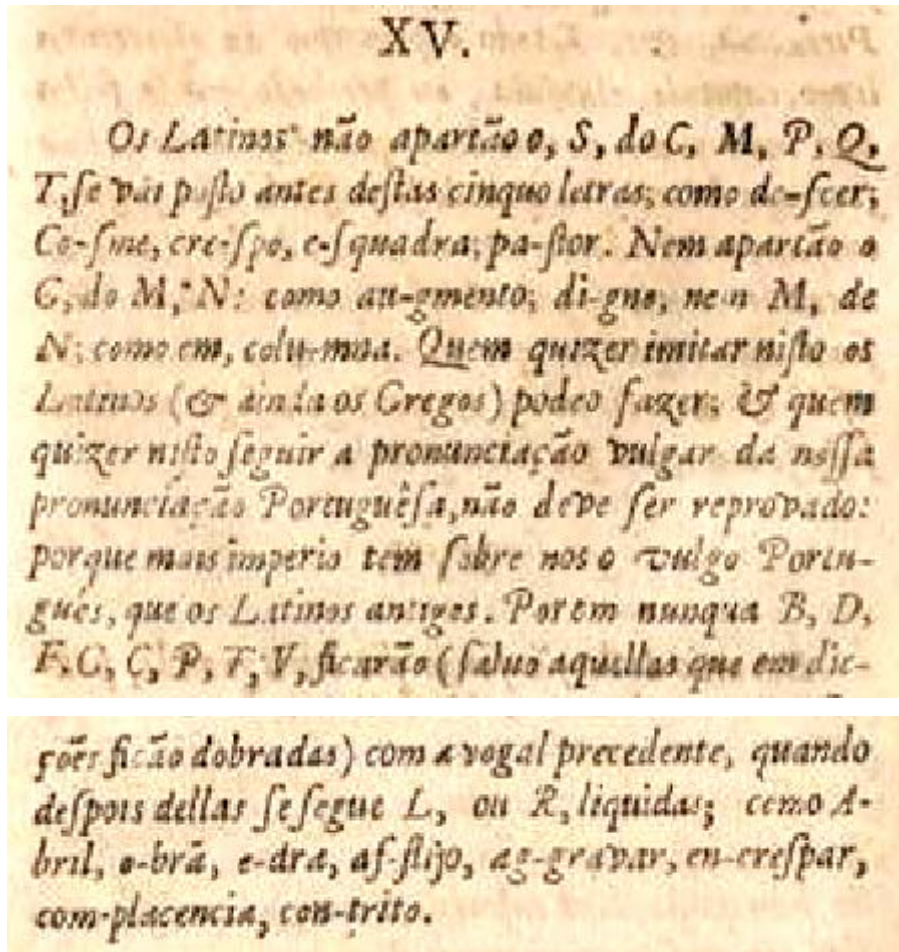 XV.
Os Latinos não apartão o, S, do C, M, P, Q,
T, se vai posto antes destas cinquo letras; como de-scer;
Co-sme, cre-spo, e-squadra; pa-stor. Nem apartão o
G, do M, N: como au-gmento; di-gno, nem M, de
N; como em, colu-mna. Quem quizer imitar nisto os
Latinos (& ainda os Gregos) podeo fazer; & quem
quizer nisto seguir a pronunciação vulgar da nossa
pronunciação Portuguêsa, não deve ser reprovado:
porque mais imperio tem sobre nos o vulgo Portu-
guês, que os Latinos antigos. Porem nunqua B, D,
F, G, C, P, T, V, ficarão (salvo aquellas que em dic-
ções ficão dobradas) com a vogal precedente, quando
despois dellas se segue L, ou R, liquidas; como A-
bril, o-bra, e-dra, af-flijo, ag-gravar, en-crespar,
com-placencia, con-trito.